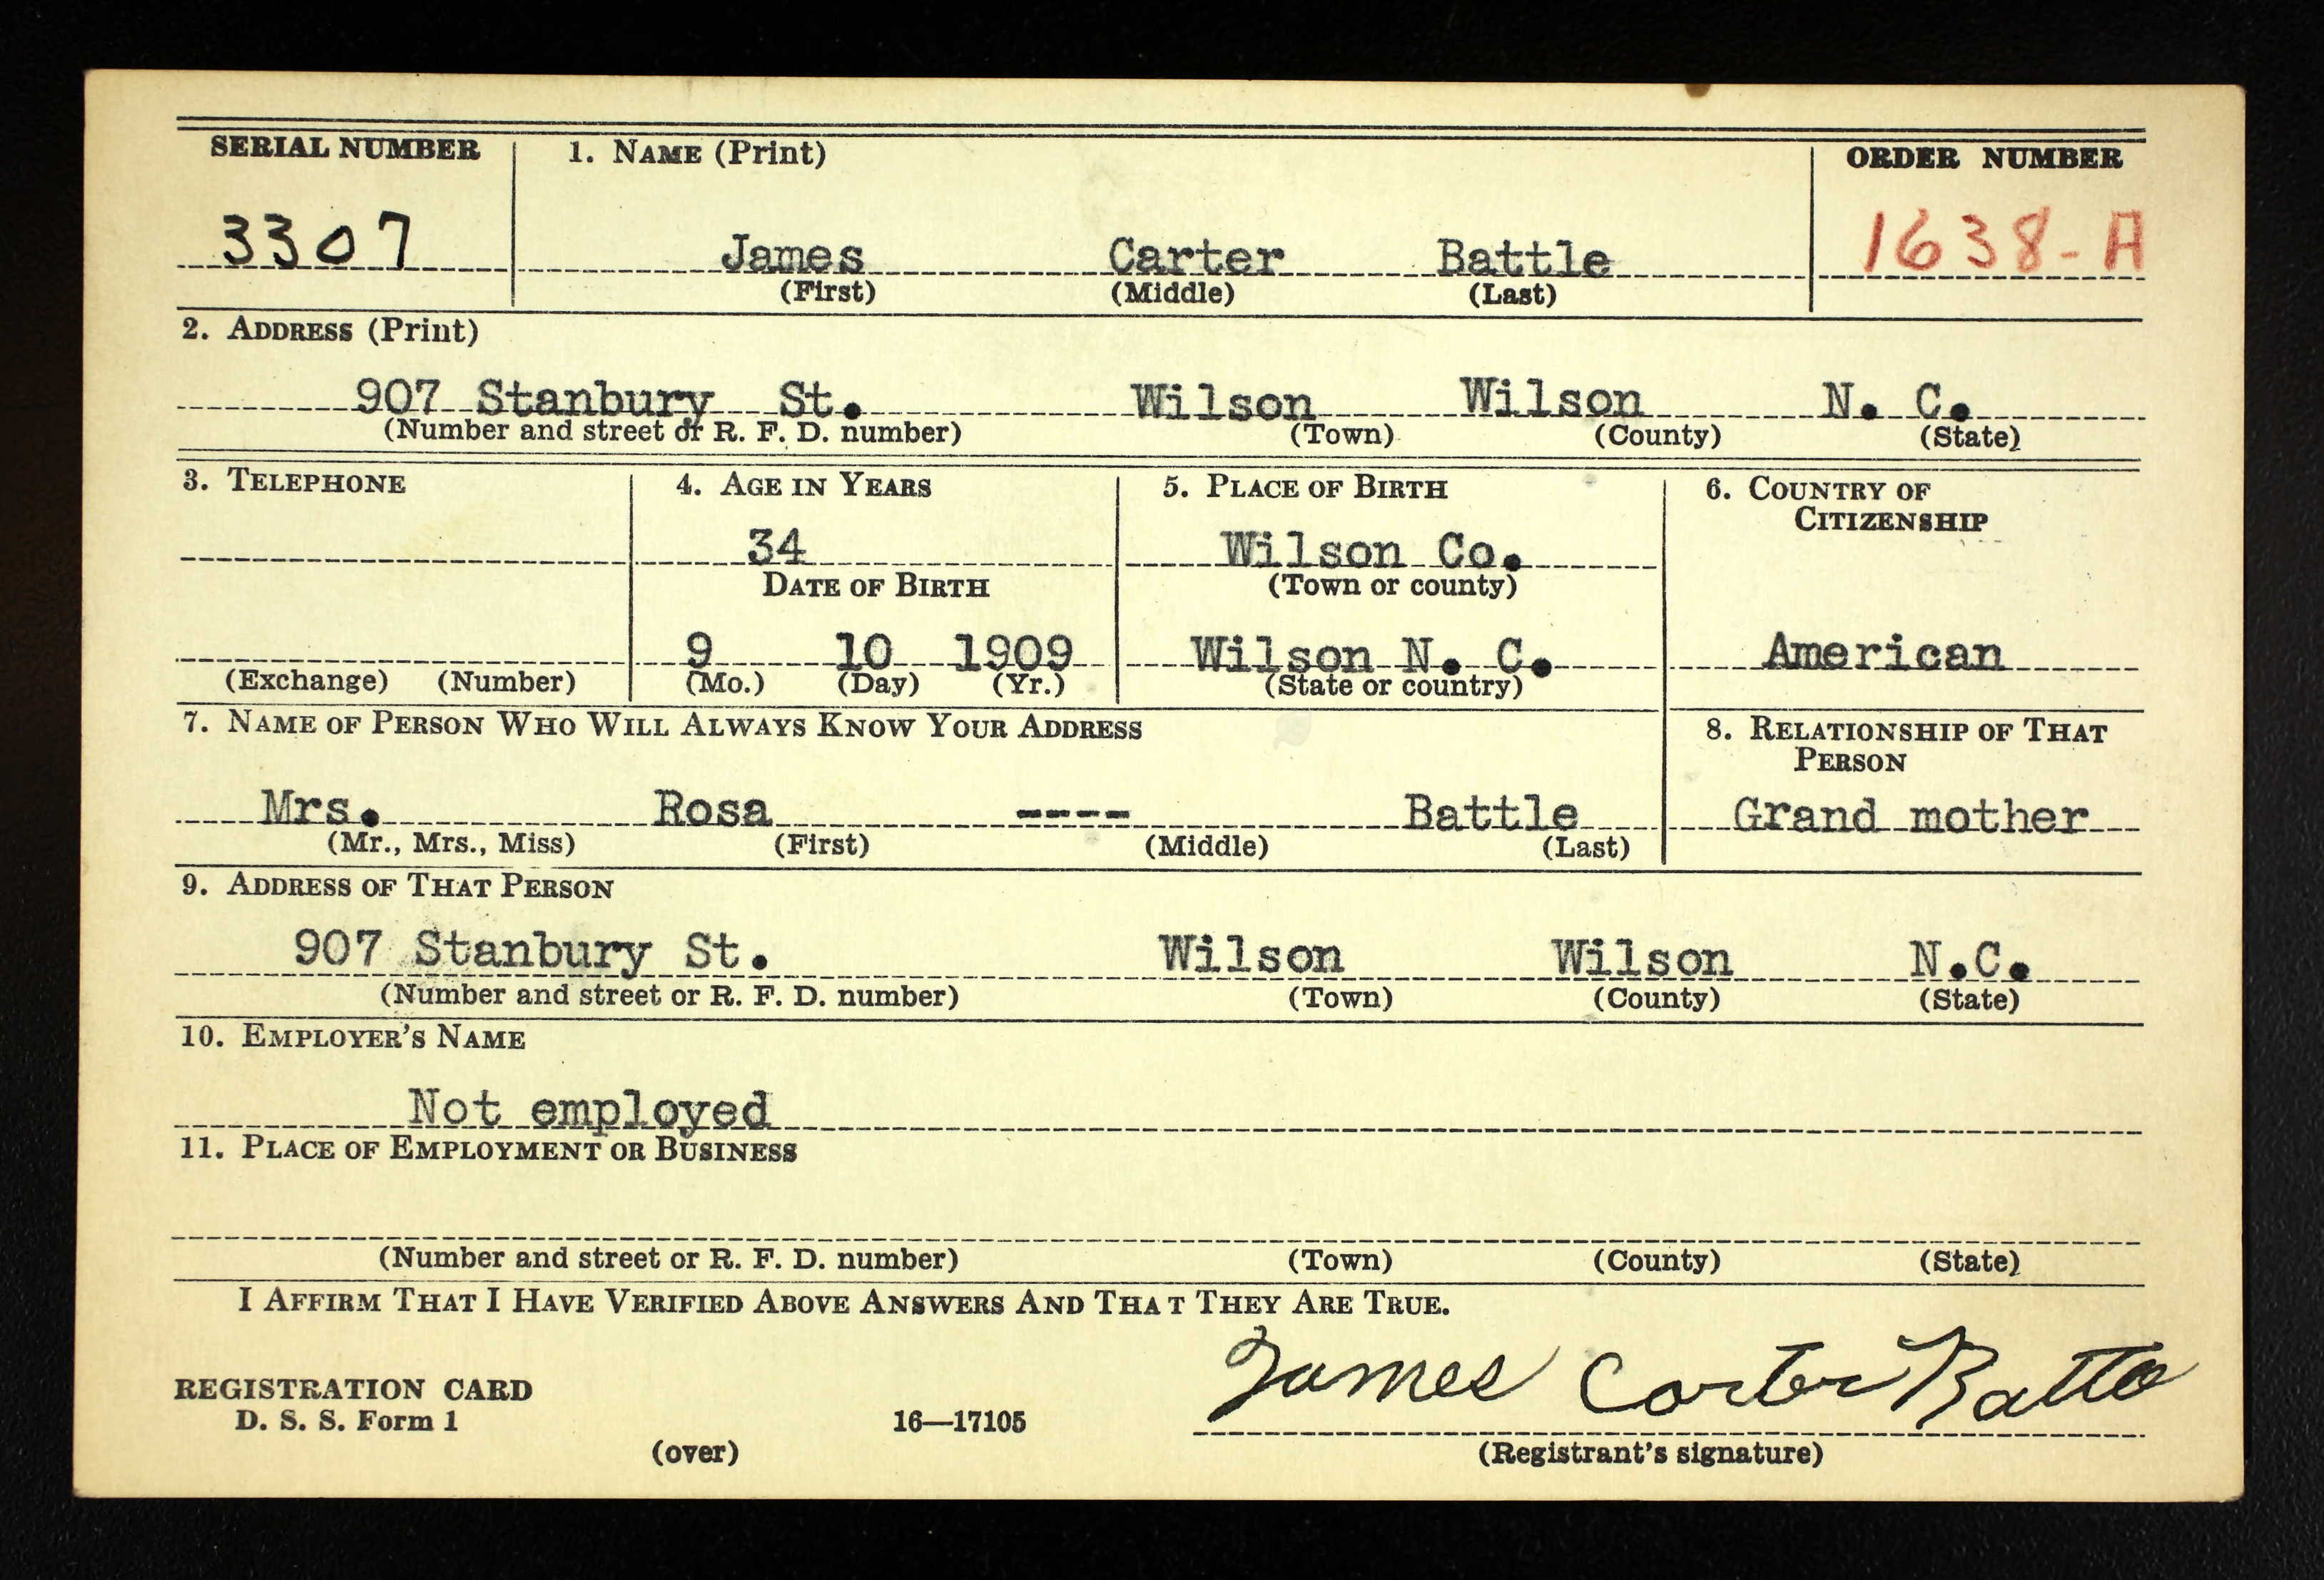 SERIAL NUMBER 1. NAME (Print) ORDER NUMBER
3307 James Carter Battle 1638-A
(First) (Middle) (Last)
2. ADDRESS (Print)
907 Stanbury St. Wilson Wilson N. C.
(Number and street or R. F. D. number) (Town) (County) (State)
3. TELEPHONE 4. AGE IN YEARS 5. PLACE OF BIRTH 6. COUNTRY OF
CITIZENSHIP
34 Wilson Co.
DATE OF BIRTH (Town or county)
9 10 1909 Wilson N. C. American
(Exchange) (Number) (Mo.) (Day) (Yr.) (State or country)
7. NAME OF PERSON WHO WILL ALWAYS KNOW YOUR ADDRESS 8. RELATIONSHIP OF THAT
PERSON
Mrs. Rosa ---- Battle Grand mother
(Mr., Mrs., Miss) (First) (Middle) (Last)
9. ADDRESS OF THAT PERSON
907 Stanbury St. Wilson Wilson N.C.
(Number and street or R. F. D. number) (Town) (County) (State)
10. EMPLOYER'S NAME
Not employed
11. PLACE OF EMPLOYMENT OR BUSINESS
(Number and street or R. F. D. number) (Town) (County) (State)
I AFFIRM THAT I HAVE VERIFIED ABOVE ANSWERS AND THAT THEY ARE TRUE.
James Carter Battle
REGISTRATION CARD
D. S. S. Form 1 16—17105
(over) (Registrant's signature)